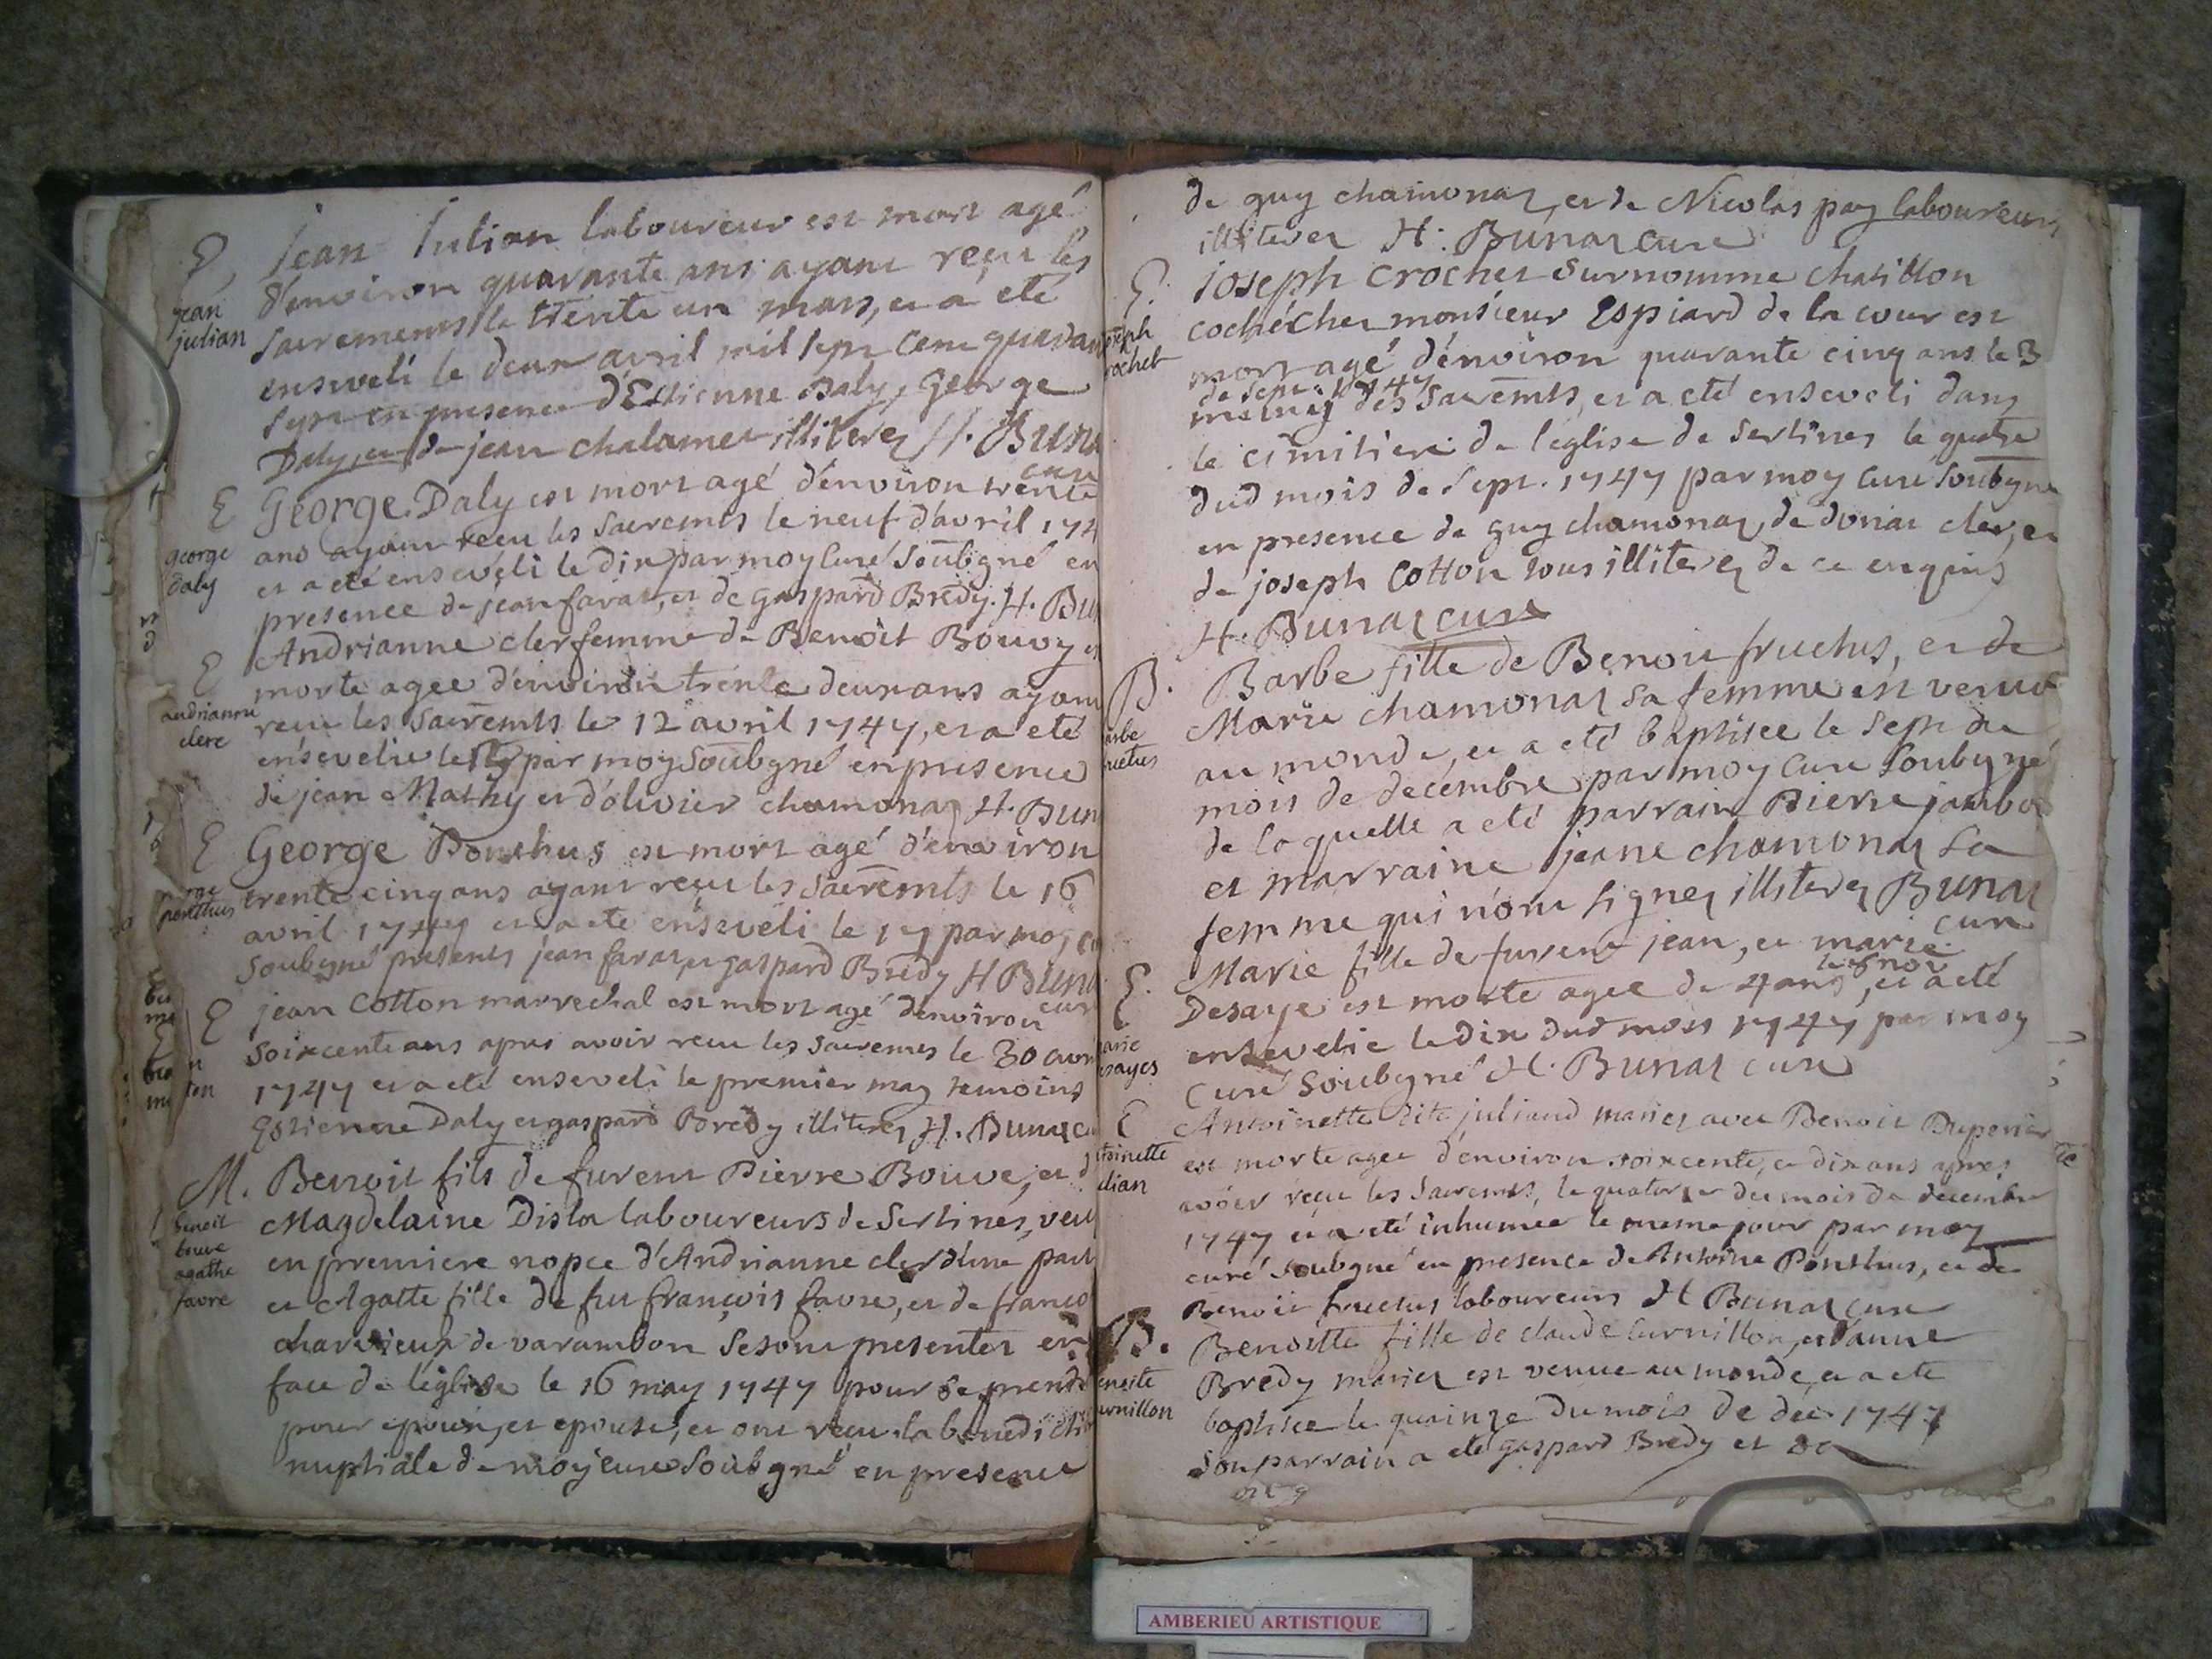 E
jean
julian
Jean Julian laboureur est mort agé
d'environ quarante ans ayant reçu les
sacrements le trente un mars, et a eté
enseveli le deux avril mil sept cent quaran
sept en presence d'Estienne Daly, George
Daly, et de jean chalamet illiterez H. Buna
curé
E
george
daly
George Daly est mort agé d'environ trente
ans ayant recu les sacremts le neuf d'avril 174
et a eté enseveli le dix par moy curé soubgné en
presence de jean farat, et de gaspard Bredy. H. Bu
E
andrianne
clerc
Andrianne cler femme de Benoit Bouvy es
morte agee d'environ trente deux ans ayant
recu les sacremts le 12 avril 1747, et a eté
ensevelie le par moy soubgné en presence
de jean Mathy et d'olivier chamonaz H. Bun
E
ponthus
George Ponthus est mort agé d'environ
trente cinq ans ayant reçu les sacremts le 16
avril 1747 et a eté enseveli le 17 par moy cu
soubgné presents jean farat, et gaspard Bredy H Buna
cur
E
jean Cotton marrechal est mort agé d'environ
soixcente ans apres avoir recu les sacremts le 30 avri
1747 et a eté enseveli le premier may temoins
Estienne Daly et gaspard Bredy illiterez H. Bunaz cu
M.
benoit
bouve
agathe
favre
Benoit fils de furent Pierre Bouve, et d
Magdelaine Disla laboureurs de Sertines, veu
en premiere nopce d'Andrianne cler d'une part
et Agatte fille de fu françois favre, et de franco
charvieux de varambon se sont presentez en
face de l'églize le 16 may 1747 pour se prendr
pour epoux, et epouse, et ont recu la benedicti
nuptiale de moy curé soubgné en presence
de guy chamonaz, et de Nicolas pay laboureurs,
illiterez H. Bunaz curé
E.
oseph
rochet
joseph Crochet surnomme chatillon
coché chez monsieur Espiard de la cour est
mort agé d'environ quarante cinq ans le 3
de sept. 1747
muny des sacremts, et a eté enseveli dans
le cimitiere de l'eglise de Sertines le quatre
dud mois de sept. 1747 par moy curé soubgné
en presence de guy chamonaz, de donat cler, et
de joseph Cotton tous illiterez de ce enquis
H. Bunaz curé
B.
arbe
ructus
Barbe fille de Benoit fructus, et de
Marie chamonaz sa femme est venue
au monde, et a eté baptisee le sept du
mois de decembre par moy curé soubgné
de laquelle a eté parrain Pierre jambo
et marraine jeane chamonaz sa
femme qui n'ont signez illiterez Bunaz
curé
E.
arie
esayes
Marie fille de furent jean, et marie
le 8 nov
Desaye est morte agee de 4 ans, et a eté
ensevelie le dix dud mois 1747 par moy
curé soubgné H. Bunaz curé
E
toinette
lian
Antoinette dite juliand mariez avec Benoit Duperier
est morte agee d'environ soixcente, et dix ans apres
avoir reçu les sacremts, le quatorze du mois de decembre
1747 et a eté inhumée le meme jour par moy
curé soubgné en presence de Antoine Ponthus, et de
Benoit fructus laboureurs H Bunaz curé
B.
enoite
urnillon
Benoitte fille de claude Curnillon, et d'anne
Bredy mariez est venue au monde, et a eté
baptisee le quainze du mois de dec. 1747
son parrain a eté gaspard Bredy et sa
AMBERIEU ARTISTIQUE